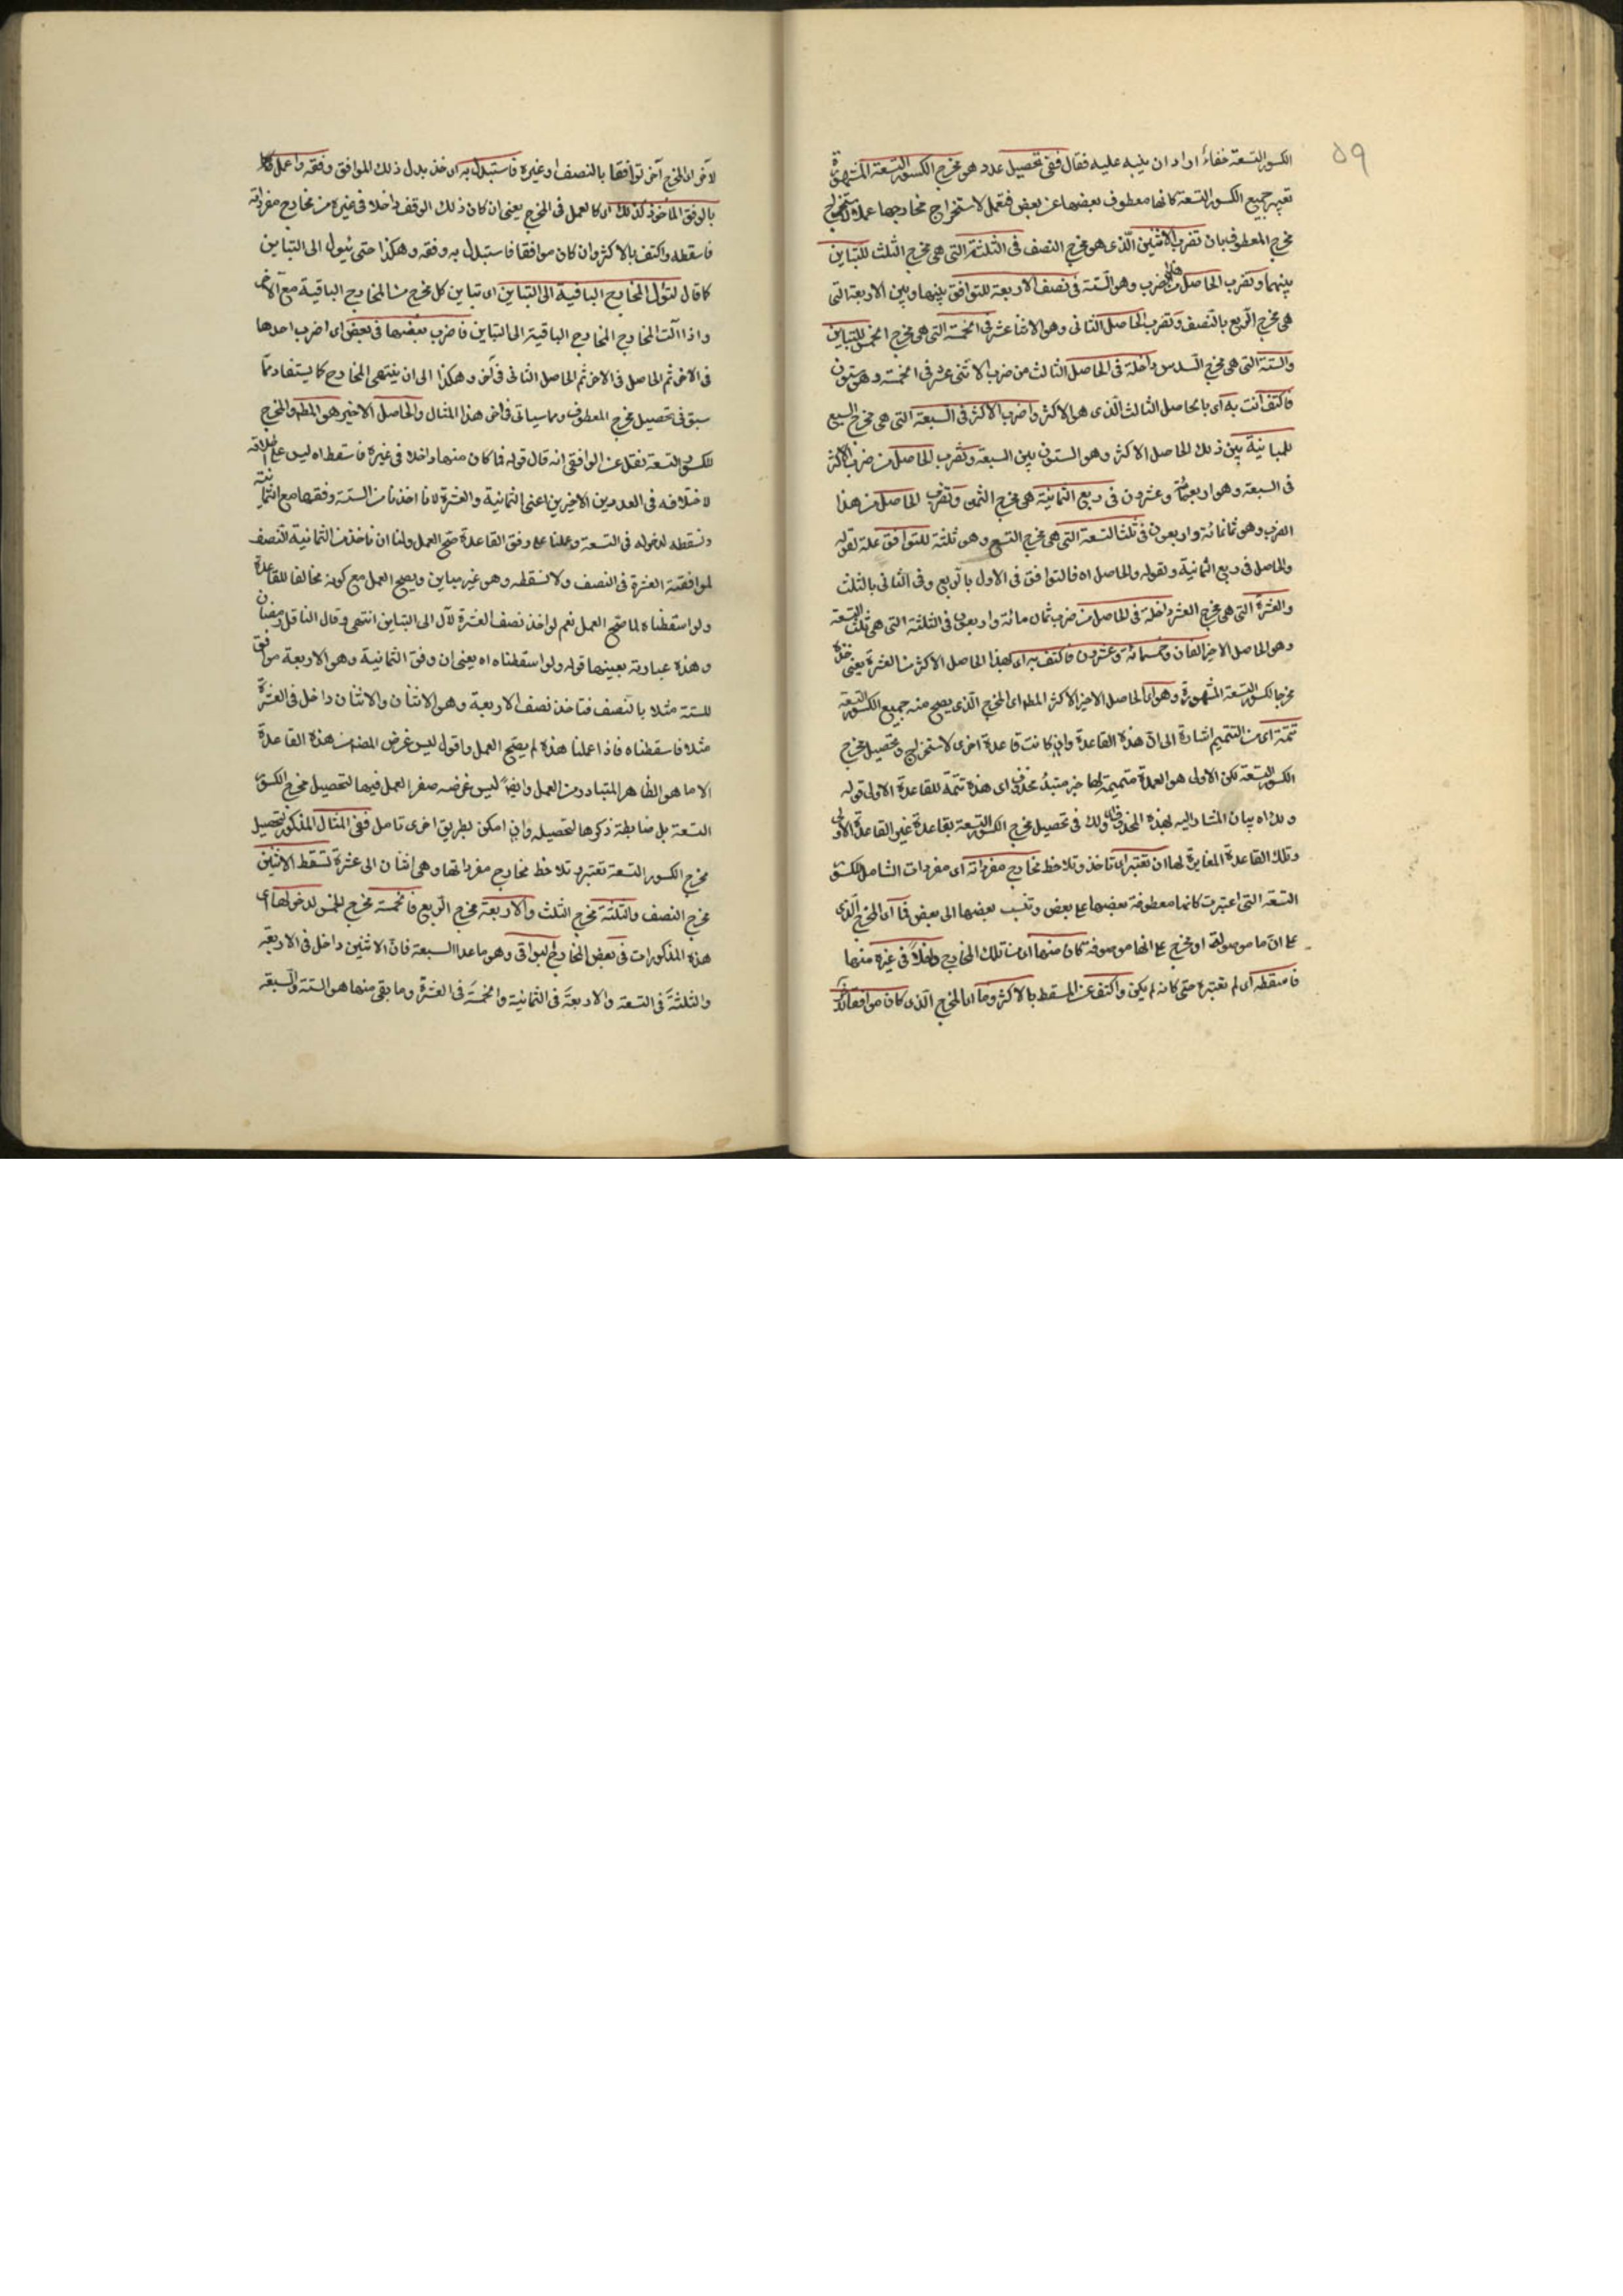 ٥٩
الكسور التسعة خفاء اراد ان ينبه عليه فقال ففى تحصيل عدد هو مخرج الكسور التسعة المشهورة
تعتبر جميع الكسور التسعة كانها معطوف بعضها عن بعض فتعمل لاستخراج مخارجها عملا
مخرج المعطوف بان تضرب الاثنين الذى هو مخرج النصف فى الثلثة التى هى مخرج الثلث للتباين
بينهما وتضرب الحاصل من الضرب وهو الستة فى نصف الاربعة للتوافق بينها وبين الاربعة التى
هى مخرج الربع بالنصف وتضرب الحاصل الثانى وهو الاثنا عشر فى الخمسة التى هى مخرج الخمس للتباين
والستة التى هى مخرج السدس داخلة فى الحاصل الثالث من ضرب الاثنى عشر فى الخمسة وهو ستون
فاكتف انت به اى بالحاصل الثالث الذى هو الاكثر واضرب الاكثر فى السبعة التى هى مخرج السبع
للمباينة بين ذلك الحاصل الاكثر وهو الستون وبين السبعة وتضرب الحاصل من ضرب الاكثر
فى السبعة وهو اربعمائة وعشرون فى ربع الثمانية هى مخرج الثمن وتضرب الحاصل من هذا
الضرب وهو ثمانمائة واربعون فى ثلث التسعة التى هى مخرج التسع وهو ثلثة للتوافق علة لقوله
والحاصل فى ربع الثمانية ولقوله والحاصل اه فالتوافق فى الاول بالربع وفى الثانى بالثلث
والعشرة التى هى مخرج العشر داخلة فى الحاصل من ضرب ثمان مائة واربعون فى الثلثة التى هى ثلث التسعة
وهو الحاصل الاخير الفان وخمسمائة وعشرون فاكتف به اى بهذا الحاصل الاكثر من العشرة يعنى خذه
مخرجا لكسور التسعة المشهورة وهو اى الحاصل الاخير الاكثر المط اى المخرج الذى يصح منه جميع الكسور التسعة
تتمة اى من التتميم اشارة الى ان هذه القاعدة وان كانت قاعدة اخرى لاستخراج وتحصيل مخرج
الكسور التسعة لكن الاولى هو العمدة متممة لها خبر مبتدأ محذوف اى هذه تتمة للقاعدة الاولى قوله
ولك اه بيان المشار اليه لهذه المحذوف ولك فى تحصيل مخرج الكسور التسعة بقاعدة غير القاعدة الاولى
وتلك القاعدة المغايرة لها ان تعتبر اى تاخذ وتلاحظ مخارج مفرداته اى مفردات الشامل للكسور
التسعة التى اعتبرت كانها معطوفة بعضها على بعض وتنسب بعضها الى بعض فما اى المخرج الذى
على ان ما موصولة او مخرج على انها موصوفة كان منها اى من تلك المخارج داخلا فى غيره منها
فاسقطه اى لم تعتبره حتى كانه لم يكن واكتف عن المسقط بالاكثر وما اى المخرج الذى كان موافقا
لآخر اى لمخرج آخر توافقا بالنصف او غيره فاستبدل به اى خذ بدل ذلك الموافق وفقه واعمل
بالوفق المأخوذ كذلك اى كالعمل فى المخرج يعنى ان كان ذلك الوفق داخلا فى غيره من مخارج مفرداته
فاسقطه واكتف بالاكثر وان كان موافقا فاستبدل به وفقه وهكذا حتى يئول الى التباين
كما قال لتؤل المخارج الباقية الى التباين اى تباين كل مخرج من المخارج الباقية مع الآخر
واذا آلت المخارج المخارج الباقية الى التباين فاضرب بعضها فى بعض اى اضرب احدها
فى الآخر ثم الحاصل فى الآخر ثم الحاصل الثانى فى آخر وهكذا الى ان ينتهى المخارج كما يستفاد مما
سبق فى تحصيل مخرج المعطوف ومما سياتى فى آخر هذا المثال والحاصل الاخير هو المط والمخرج
للكسور التسعة نقل عن الوافقى انه قال قوله فما كان منها داخلا فى غيره فاسقط اه ليس على اطلاقه
لاختلافه فى العددين الاخيرين اعنى الثمانية والعشرة لانا اخذنا من الستة وفقها مع الثمانية
ونسقطه لدخوله فى التسعة وعملنا على وفق القاعدة صح العمل ولنا ان ناخذ من الثمانية النصف
لموافقة العشرة فى النصف ولا نسقطه وهو غير مباين ويصح العمل مع كونه مخالفا للقاعدة
ولو اسقطناه لما صح العمل نعم لو اخذ نصف العشرة لآل الى التباين انتهى وقال الناقل رمضان
وهذه عبارته بعينها قوله ولو اسقطناه اه يعنى ان وفق الثمانية وهو الاربعة موافق
للستة مثلا بالنصف فتاخذ نصف الاربعة وهو الاثنان والاثنان داخل فى العشرة
مثلا فاسقطناه فاذا عملنا هذه لم يصح العمل واقول ليس غرض المصنف من هذه القاعدة
الا ما هو الظاهر المتبادر من العمل وايضا ليس غرضه صفر العمل فيها لتحصيل مخرج الكسور
التسعة بل ضابطة ذكرها لتحصيله وان امكن بطريق اخرى تامل ففى المثال المذكور لتحصيل
مخرج الكسور التسعة تعتبر وتلاحظ مخارج مفرداتها وهى اثنان الى عشرة تسقط الاثنين
مخرج النصف والثلثة مخرج الثلث والاربعة مخرج الربع فالخمسة مخرج الخمس لدخولها اى
هذه المذكورات فى بعض المخارج البواقى وهو ما عدا السبعة فان الاثنين داخل فى الاربعة
والثلثة فى التسعة والاربعة فى الثمانية والخمسة فى العشرة وما بقى منها هو الستة والسبعة